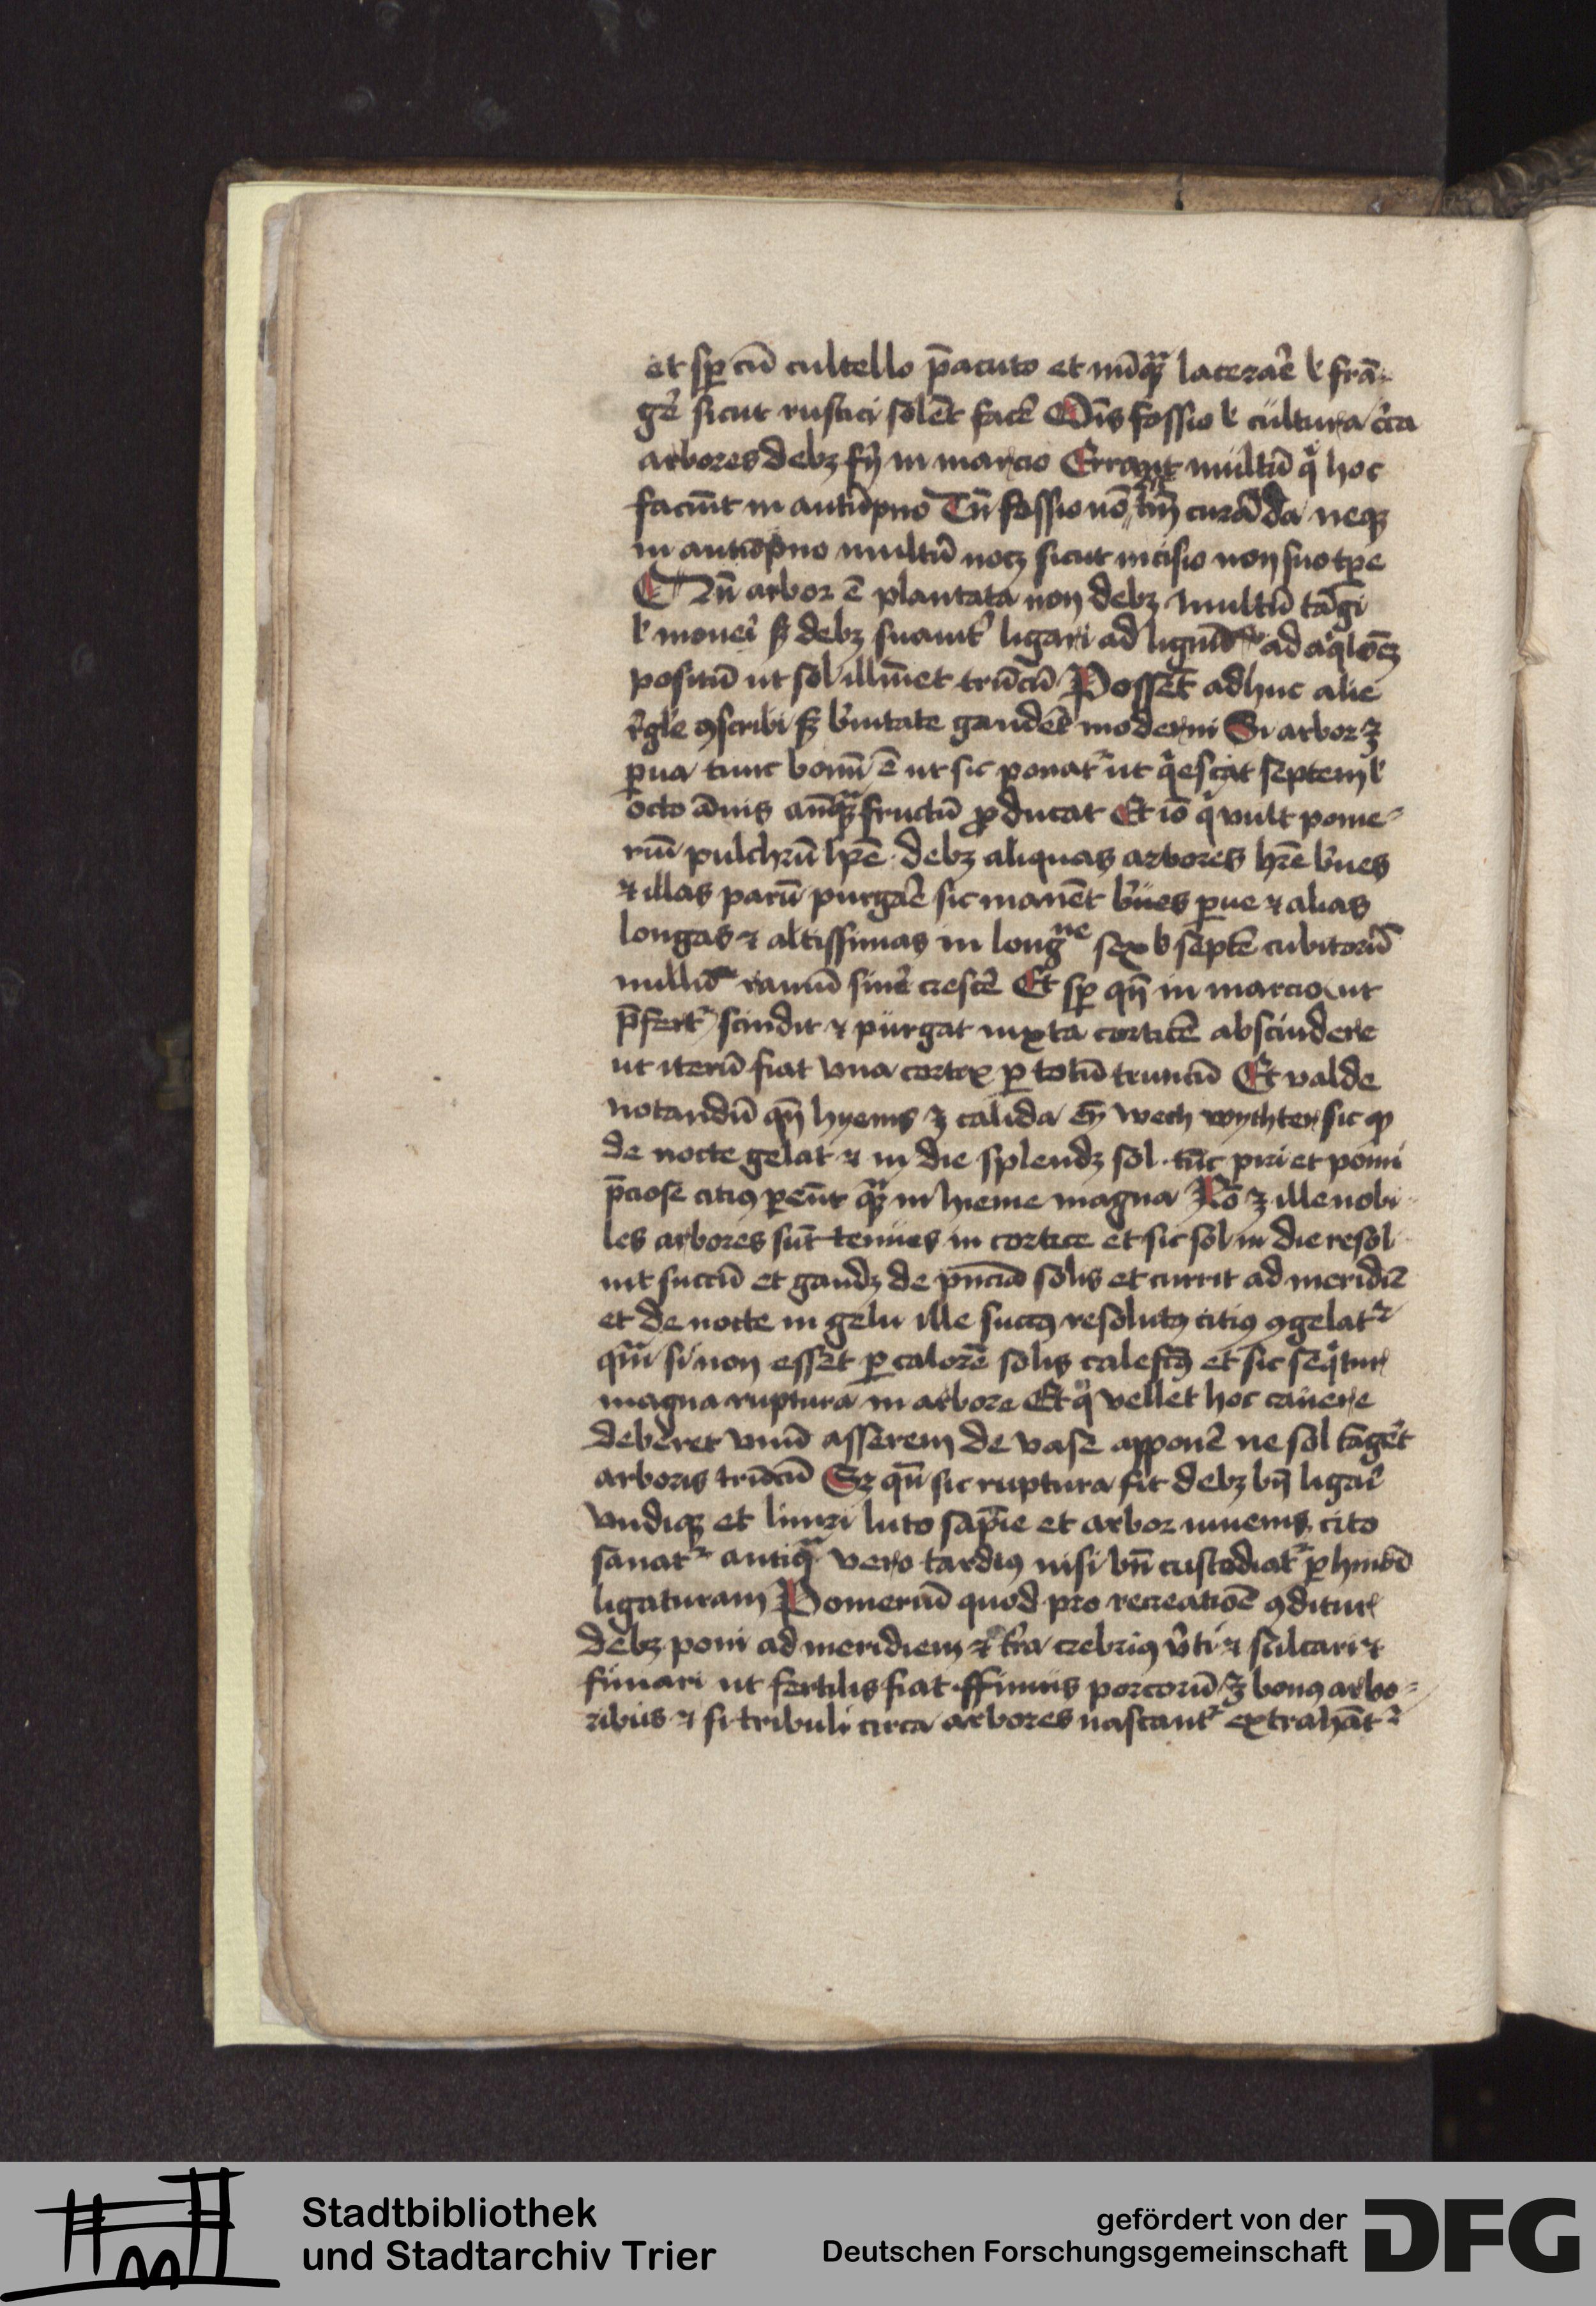 et sꝑ cū cultello p̄acuto et nūqꝫ lacerar̄e ł frā-
gēr sicut rustici solēt facē Oīs fossio ł cultura c̄ca
arbores debꝫ fīj in marcio Errant multū qͥ hoc
faciūt in autūpno Tn̄ fossio nō tm̄ curāda neqꝫ
in autūpno multū nocꝫ sicut incisio non suo tꝑe
Dū arbor ē plantata non debꝫ multū tāgi
ł moueri sꝫ debꝫ suauitr̄ ligari ad lignū ad aqͥlōeꝫ
positū ut sol illiūet trūcū Possēt adhuc alie
rͤgle ꝯscribi sꝫ bͬuitate gaudēt moderni Si arbor ꝫ
ꝑua tunc bonū ē ut sic ponatͬ ut qͥescat septem ł
octo ānis anteqꝫ fructū ꝓducat Et iō qͥ vult pome-
riū pulchrū hr̄e debꝫ aliquas arbores hr̄e bͬues
⁊ illas parū purgar̄e sic manēt bͬues ꝑue ⁊ alias
longas ⁊ altissimas in longͥⁿᵉ sex ł septē cubitorū
nullū ramū sinēr crescēr Et sꝑ qn̄ in marcio ut
p̄fertͬ scindit ⁊ purgat iuxta corticē abscindere
ut iterū fiat vna cortex ꝑ totū truncū Et valde
notandū qn̄ hyems ꝫ calida eȳ wech wychter sic ꝙ
de nocte gelat ⁊ in die splendꝫ sol. tūc piri et pomi
p̄ciose citiꝰ ꝑeūt qꝫ in hieme magna Rō ꝫ ille nobi-
les arbores sūt tenues in cortice et sic sol in die resol-
uit succū et gaudꝫ de pn̄cia solis et currit ad meridiē
et de nocte in gelu ille succꝰ resolutꝰ citiꝰ ꝯgelatͬ
qm̄ si non esset ꝑ calorē solis calefcꝰ et sic seqͥtur
magna ruptura in arbore Et qͥ vellet hoc cauere
deberet vnū asserem de vase apponēr ne sol tāgēt
arboris trūcū Sꝫ qn̄ sic ruptura fit debꝫ bn̄ ligari
vndiqꝫ et liniri luto sapͥe et arbor iuuenis cito
sanatͬ antiqͣ vero tardiꝰ nisi bn̄ custodiatͬ ꝑ hmōi
ligaturam Pomeriū quod pro recreatiōē ꝯditur
debꝫ poni ad meridiem ⁊ tͬra crebriꝰ v̄ti ⁊ sulcari ⁊
fimari ut fertilis fiat ffimus porcorū ꝫ bonꝰ arbo-
ribus ⁊ si tribuli circa arbores nascantͬ extrahātͬ
Stadtbibliothek
und Stadtarchiv Trier
gefördert von der
Deutschen Forschungsgemeinschaft
DFG